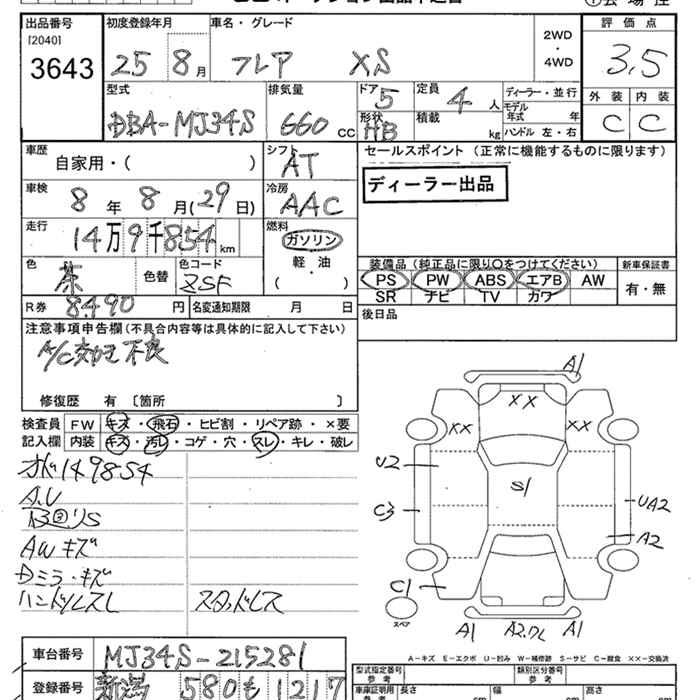 出品番号 初度登録年月 車名・グレード 評価点
[2040] 2WD
3643 25 8月 フレア XS ・ 3.5
4WD
型式 排気量 ドア 5 定員 4人 ディーラー・並行 外装 内装
DBA-MJ34S 660 CC 形状 HB 積載 kg モデル年式 年 C C
ハンドル 左・右
車歴 自家用・( ) シフト AT セールスポイント(正常に機能するものに限ります)
車検 8年 8月(29日) 冷房 AAC ディーラー出品
走行 14万9千854km 燃料 ガソリン
軽・油
( )
色 茶 色替 色コード ZSF 装備品(純正品に限り○をつけてください) 新車保証書
PS PW ABS エアB AW 有・無
SR ナビ TV カワ
R券 8490円 名変通知期限 月 日 後日品
注意事項申告欄(不具合内容等は具体的に記入して下さい)
A/C 不良
修復歴 有〔箇所 〕
検査員 FW キズ・飛石・ヒビ割・リペア跡・×要
記入欄 内装 キズ・汚レ・コゲ・穴・スレ・キレ・破レ
149854
A.U
AWキズ
Dミラ・キズ
ハンドルスレ スタッドレス
A1
XX
XX XX
U2
S1
C3 UA2
A2
C1
スペア
A1 A1
車台番号 MJ34S-215281
A-キズ E-エクボ U-凹み W-補修跡 S-サビ C-腐食 ××-交換済
登録番号 新潟 580 も 1217
型式指定番号 類別区分番号
参考 参考
車庫証明用 長さ 幅 高さ
参考 cm cm cm